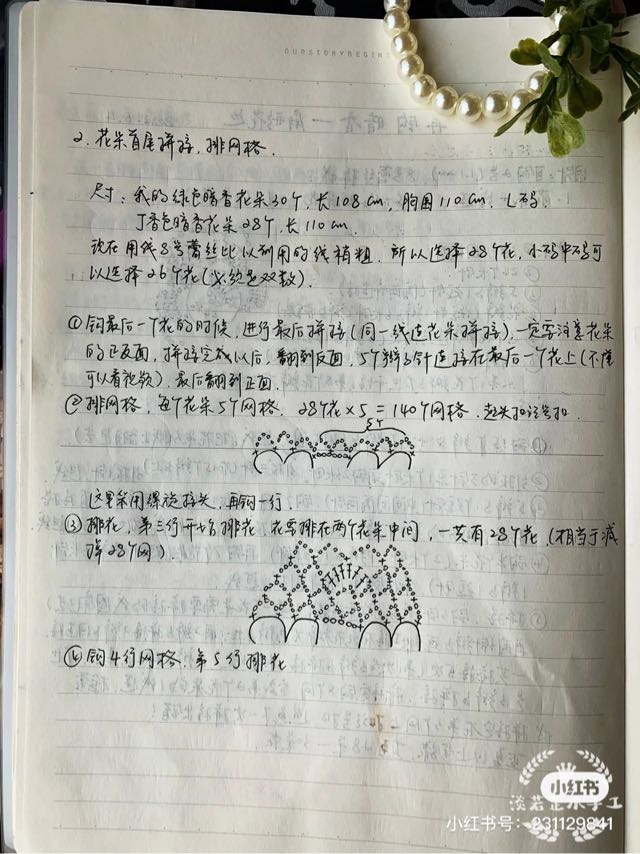 OURSTORYBEGIN
2. 花朵首尾拼接，排网格.
尺寸：我的绿色暗香花朵30个，长108cm，胸围110cm. L码.
丁香色暗香花朵28个，长110cm.
现在用线8号蕾丝比以前用的线稍粗. 所以选择28个花，小码中码可
以选择26个花(必须是双数).
①钩最后一个花的时候，进行最后拼接(同一线连花朵拼接)，一定要注意花朵
的正反面，拼接完成以后，翻到反面，5个辫子针连接在最后一个花上(不懂
可以看视频). 最后翻到正面.
②排网格，每个花朵5个网格，28个花×5=140个网格. 起头扣记号扣
5个
这里采用螺旋接头，再钩一行.
③排花，第三行开始排花，花要排在两个花朵中间，一共有28个花.(相当于减
掉28个网).
④钩4行网格. 第5行排花
小红书
淡若芷水手工
小红书号：231129841